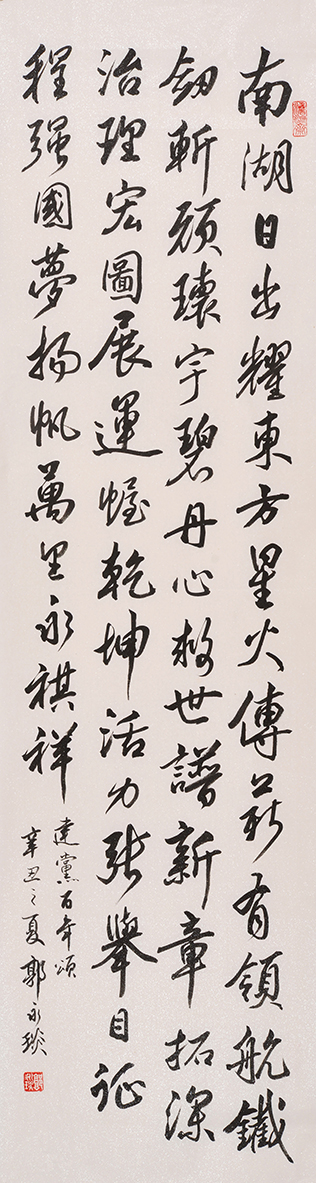 南湖日出耀東方星火傳薪有領航鐵
劍斬頑環宇碧丹心救世譜新章拓深
治理宏圖展運幄乾坤活力張舉目征
程强國夢揚帆萬里永祺祥
建黨百年頌
辛丑之夏郭永琰